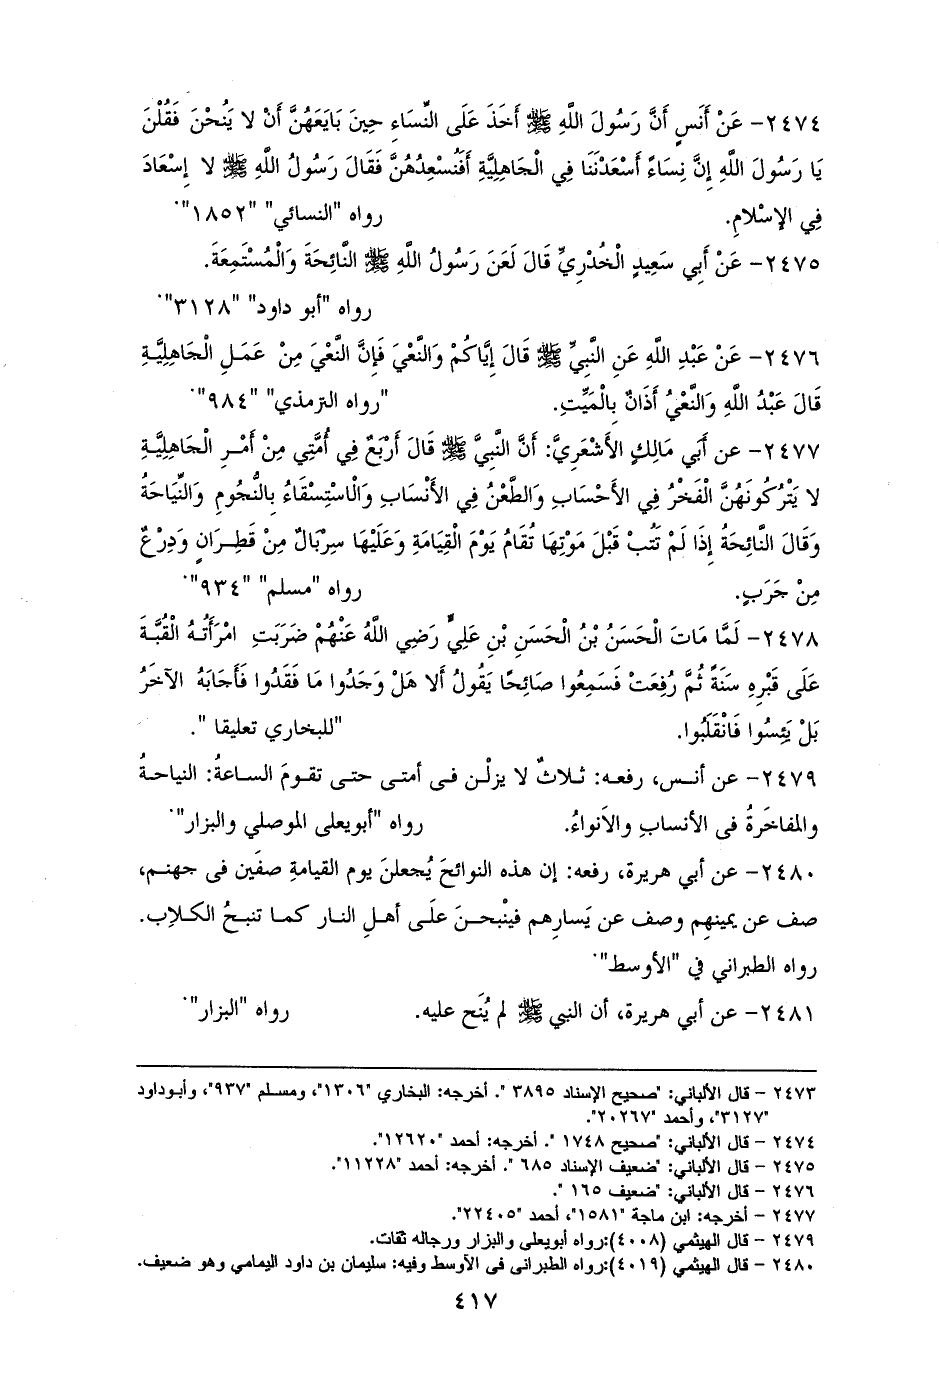 ٢٤٧٤- عَنْ أَنَسٍ أَنَّ رَسُولَ اللَّهِ ﷺ أَخَذَ عَلَى النِّسَاءِ حِينَ بَايَعَهُنَّ أَنْ لا يَنُحْنَ فَقُلْنَ
يَا رَسُولَ اللَّهِ إِنَّ نِسَاءً أَسْعَدْنَنَا فِي الْجَاهِلِيَّةِ أَفَنُسْعِدُهُنَّ فَقَالَ رَسُولُ اللَّهِ ﷺ لا إِسْعَادَ
فِي الإِسْلامِ. رواه "النسائي" "١٨٥٢".
٢٤٧٥- عَنْ أَبِي سَعِيدٍ الْخُدْرِيِّ قَالَ لَعَنَ رَسُولُ اللَّهِ ﷺ النَّائِحَةَ وَالْمُسْتَمِعَةَ.
رواه "أبو داود" "٣١٢٨".
٢٤٧٦- عَنْ عَبْدِ اللَّهِ عَنِ النَّبِيِّ ﷺ قَالَ إِيَّاكُمْ وَالنَّعْيَ فَإِنَّ النَّعْيَ مِنْ عَمَلِ الْجَاهِلِيَّةِ
قَالَ عَبْدُ اللَّهِ وَالنَّعْيُ أَذَانٌ بِالْمَيِّتِ. "رواه الترمذي" "٩٨٤".
٢٤٧٧- عن أَبِي مَالِكٍ الأَشْعَرِيَّ: أَنَّ النَّبِيَّ ﷺ قَالَ أَرْبَعٌ فِي أُمَّتِي مِنْ أَمْرِ الْجَاهِلِيَّةِ
لا يَتْرُكُونَهُنَّ الْفَخْرُ فِي الأَحْسَابِ وَالطَّعْنُ فِي الأَنْسَابِ وَالْاسْتِسْقَاءُ بِالنُّجُومِ وَالنِّيَاحَةُ
وَقَالَ النَّائِحَةُ إِذَا لَمْ تَتُبْ قَبْلَ مَوْتِهَا تُقَامُ يَوْمَ الْقِيَامَةِ وَعَلَيْهَا سِرْبَالٌ مِنْ قَطِرَانٍ وَدِرْعٌ
مِنْ جَرَبٍ. رواه "مسلم" "٩٣٤".
٢٤٧٨- لَمَّا مَاتَ الْحَسَنُ بْنُ الْحَسَنِ بْنِ عَلِيٍّ رَضِيَ اللَّهُ عَنْهُمْ ضَرَبَتِ امْرَأَتُهُ الْقُبَّةَ
عَلَى قَبْرِهِ سَنَةً ثُمَّ رُفِعَتْ فَسَمِعُوا صَائِحًا يَقُولُ أَلا هَلْ وَجَدُوا مَا فَقَدُوا فَأَجَابَهُ الآخَرُ
بَلْ يَئِسُوا فَانْقَلَبُوا. "للبخاري تعليقا ".
٢٤٧٩- عن أنس، رفعه: ثلاثٌ لا يزلْن فى أمتى حتى تقومَ الساعةُ: النياحةُ
والمفاخَرةُ فى الأنسابِ والأنواءُ. رواه "أبويعلى الموصلي والبزار".
٢٤٨٠- عن أبي هريرة، رفعه: إن هذه النوائحَ يُجعلنَ يوم القيامةِ صفَين فى جهنم،
صف عن يمينهِم وصف عن يَسارِهم فينْبحنَ علَى أهلِ النار كما تنبحُ الكلابِ.
رواه الطبراني في "الأوسط".
٢٤٨١- عن أبي هريرة، أن النبي ﷺ لم يُنَح عليه. رواه "البزار".
٢٤٧٣ - قال الألباني: "صحيح الإسناد ٣٨٩٥ ". أخرجه: البخاري "١٣٠٦"، ومسلم "٩٣٧"، وأبوداود
"٣١٢٧"، وأحمد "٢٠٢٦٧".
٢٤٧٤ - قال الألباني: "صحيح ١٧٤٨ ". أخرجه: أحمد "١٢٦٢٠".
٢٤٧٥ - قال الألباني: "ضعيف الإسناد ٦٨٥ ". أخرجه: أحمد "١١٢٢٨".
٢٤٧٦ - قال الألباني: "ضعيف ١٦٥ ".
٢٤٧٧ - أخرجه: ابن ماجة "١٥٨١"، أحمد "٢٢٤٠٥".
٢٤٧٩ - قال الهيثمي (٤٠٠٨):رواه أبويعلى والبزار ورجاله ثقات.
٢٤٨٠ - قال الهيثمي (٤٠١٩):رواه الطبرانى فى الأوسط وفيه: سليمان بن داود اليمامي وهو ضعيف.
٤١٧